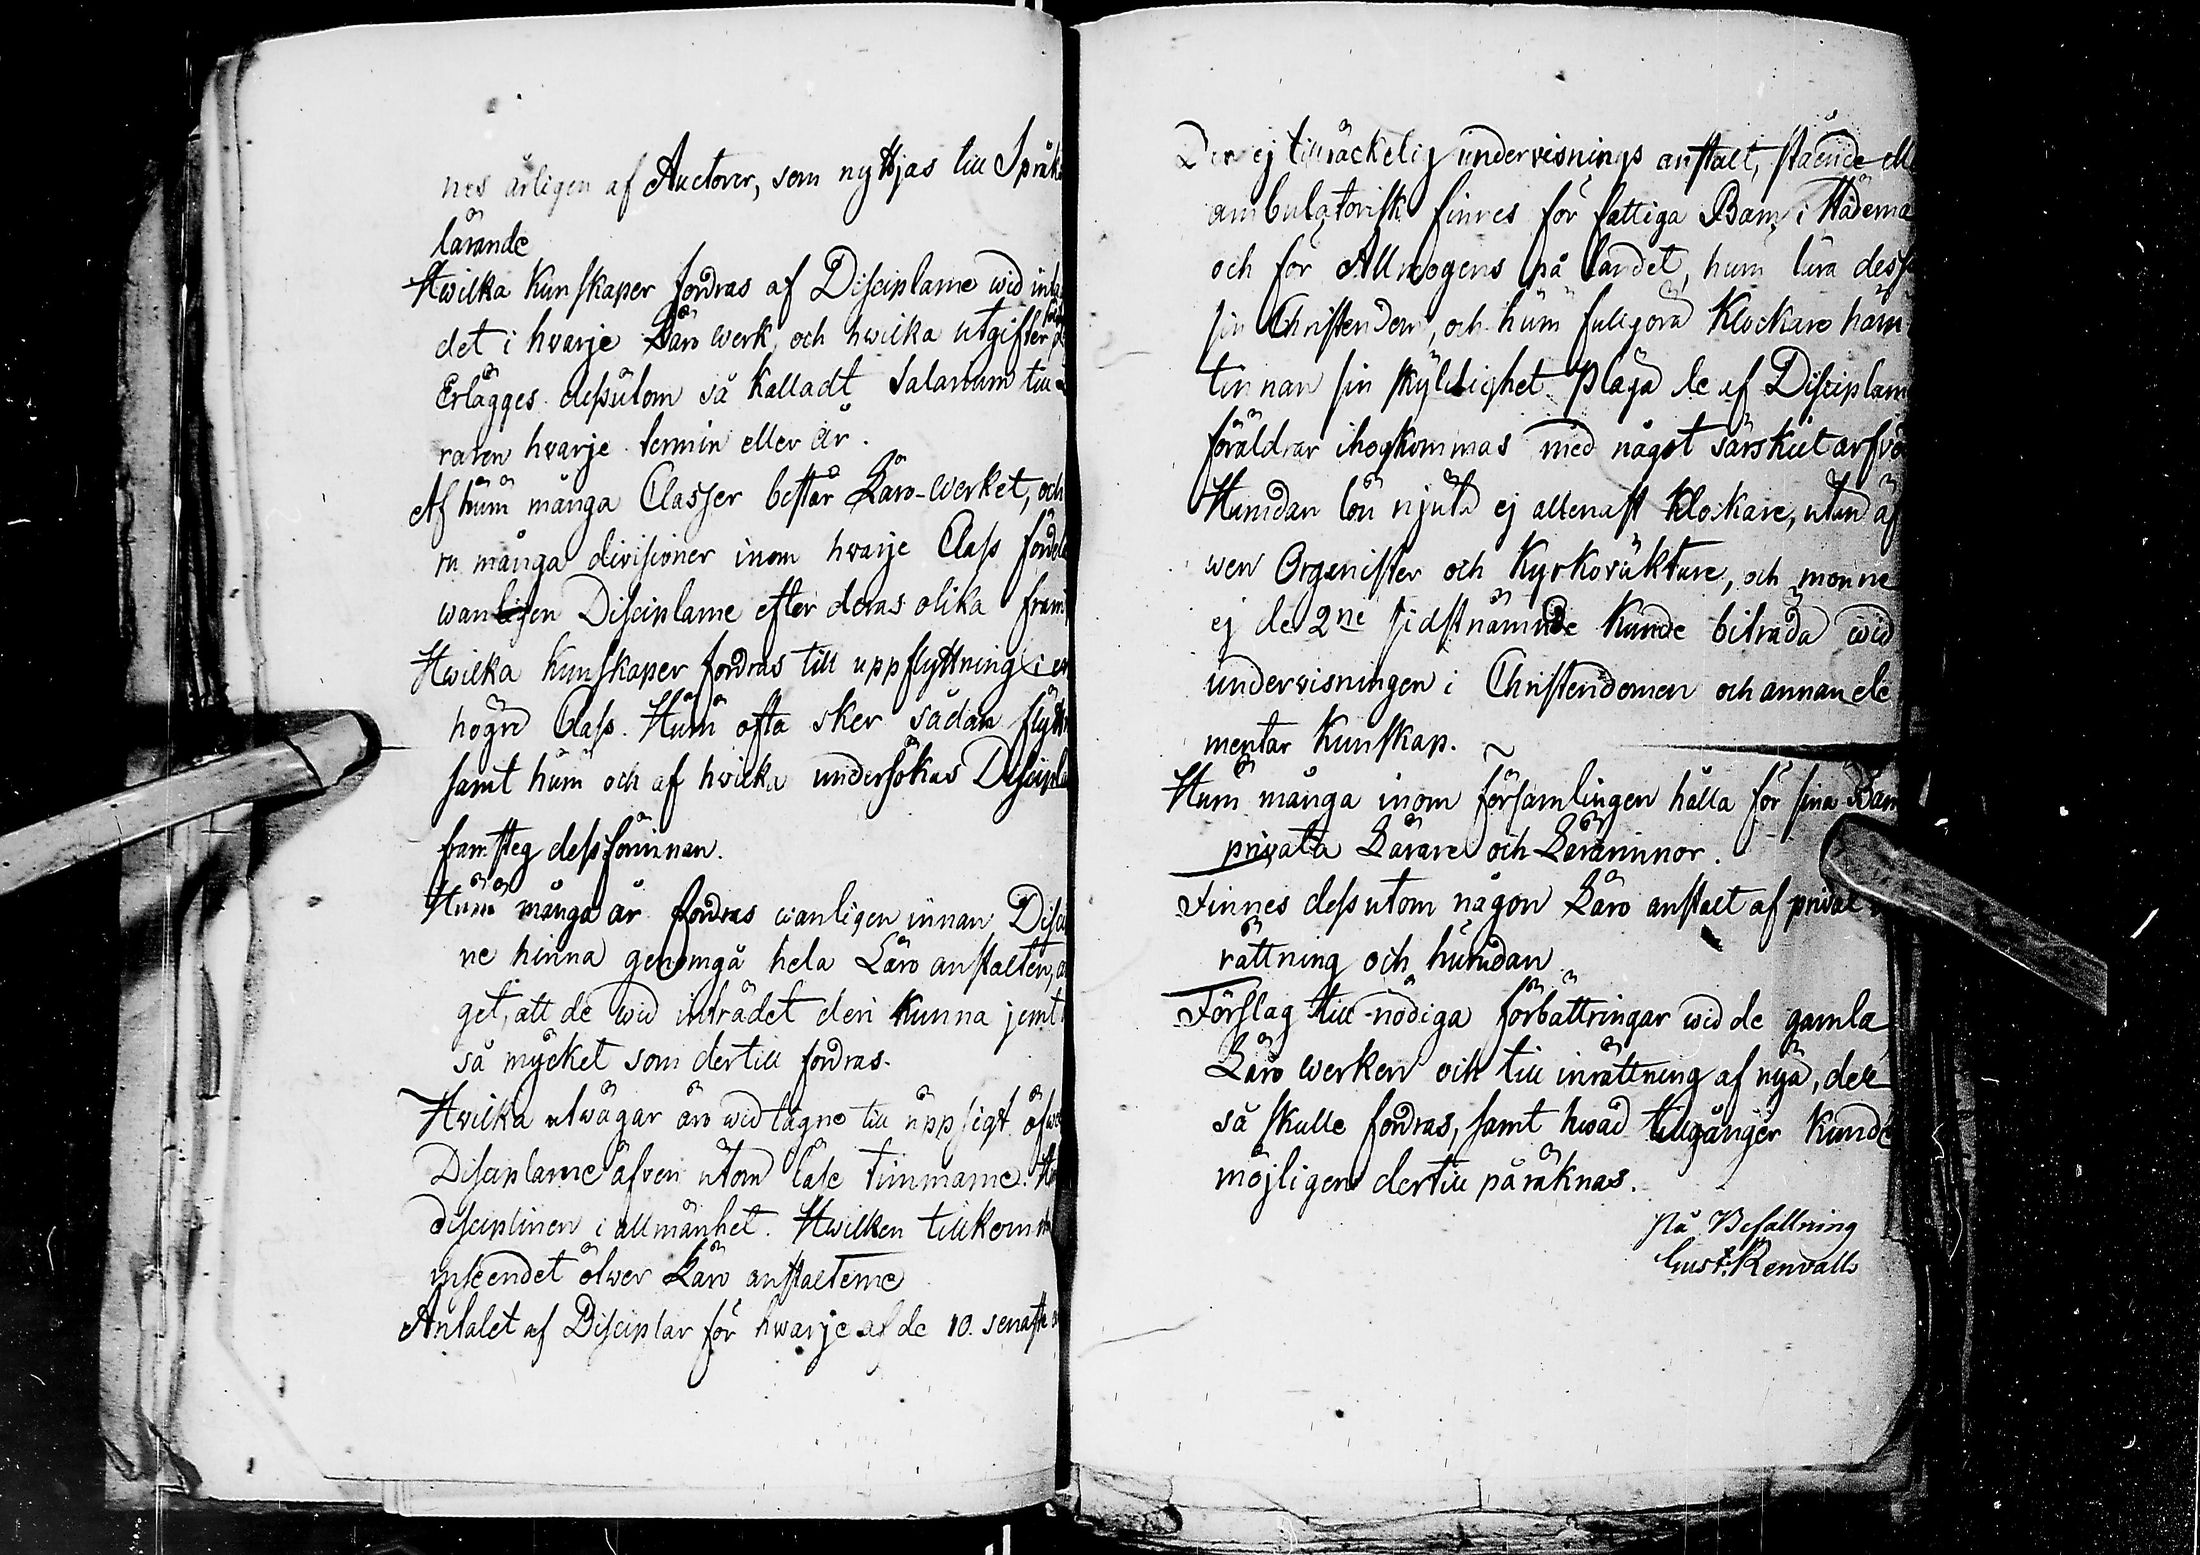 nes årligen af Auctorer, som nyttjas till Språk
lärande
Hwilka Kunskaper fordras af Disciplarne wid inta
det i hvarje Läro werk, och hwilka utgifter
Erlägges dessutom så kalladt Salarium till
raren hvarje termin eller år.
Af huru många Classer består Läro-Werket, och
ru många divisioner inom hwarje Class fördel
wanligen Disciplarne efter deras olika fram
Hwilka Kunskaper fordras till uppflyttning i en
högre Class. Huru ofta sker sådan flyttn
samt huru och af hwilka undersökas Discipla
framsteg dessförinnan.
Huru många år fordras wanligen innan Disci
ne hinna genomgå hela Läro anstalten,
get, att de wid inträdet deri Kunna jemt
så mycket som dertill fordras.
Hwilka utwägar äro widtagne till uppsigt öfwe
Disciplarne äfven utom läse timmarne. Hu
disciplinen i allmänhet. Hwilken tillkomm
inseendet öfwer Läro anstalterne
Antalet af Disciplar för hwarje af de 10. senaste
Der ej tillräckelig undervisnings anstalt, stående elle
ambulatorisk finnes för fattiga Barn i Städerna
och för Allmogens på landet, huru lära dess
sin Christendom, och huru fullgöra Klockare häru
tinnan sin skyldighet. Pläga de af Disciplarn
föräldrar ihogkommas med något särskilt arfvo
Hurudan lön njuta ej allenast Klockare, utan äf
wen Organister och Kyrkoväktare, och monne
ej de 2ne sidstnämnde Kunde biträda wid
undervisningen i Christendomen och annan ele
mentar Kunskap.
Huru många inom församlingen hålla för sina Barn
privata Lärare och Lärarinnor.
Finnes dessutom någon Läro anstalt af privat
rättning och hurudan
Förslag till nödiga förbättringar wid de gamla
Läro werken och till inrättning af nya, der
så skulle fordras, samt hwad tillgånger Kunde
möjligen dertill påräknas.
På Befallning
Gust. Renvall